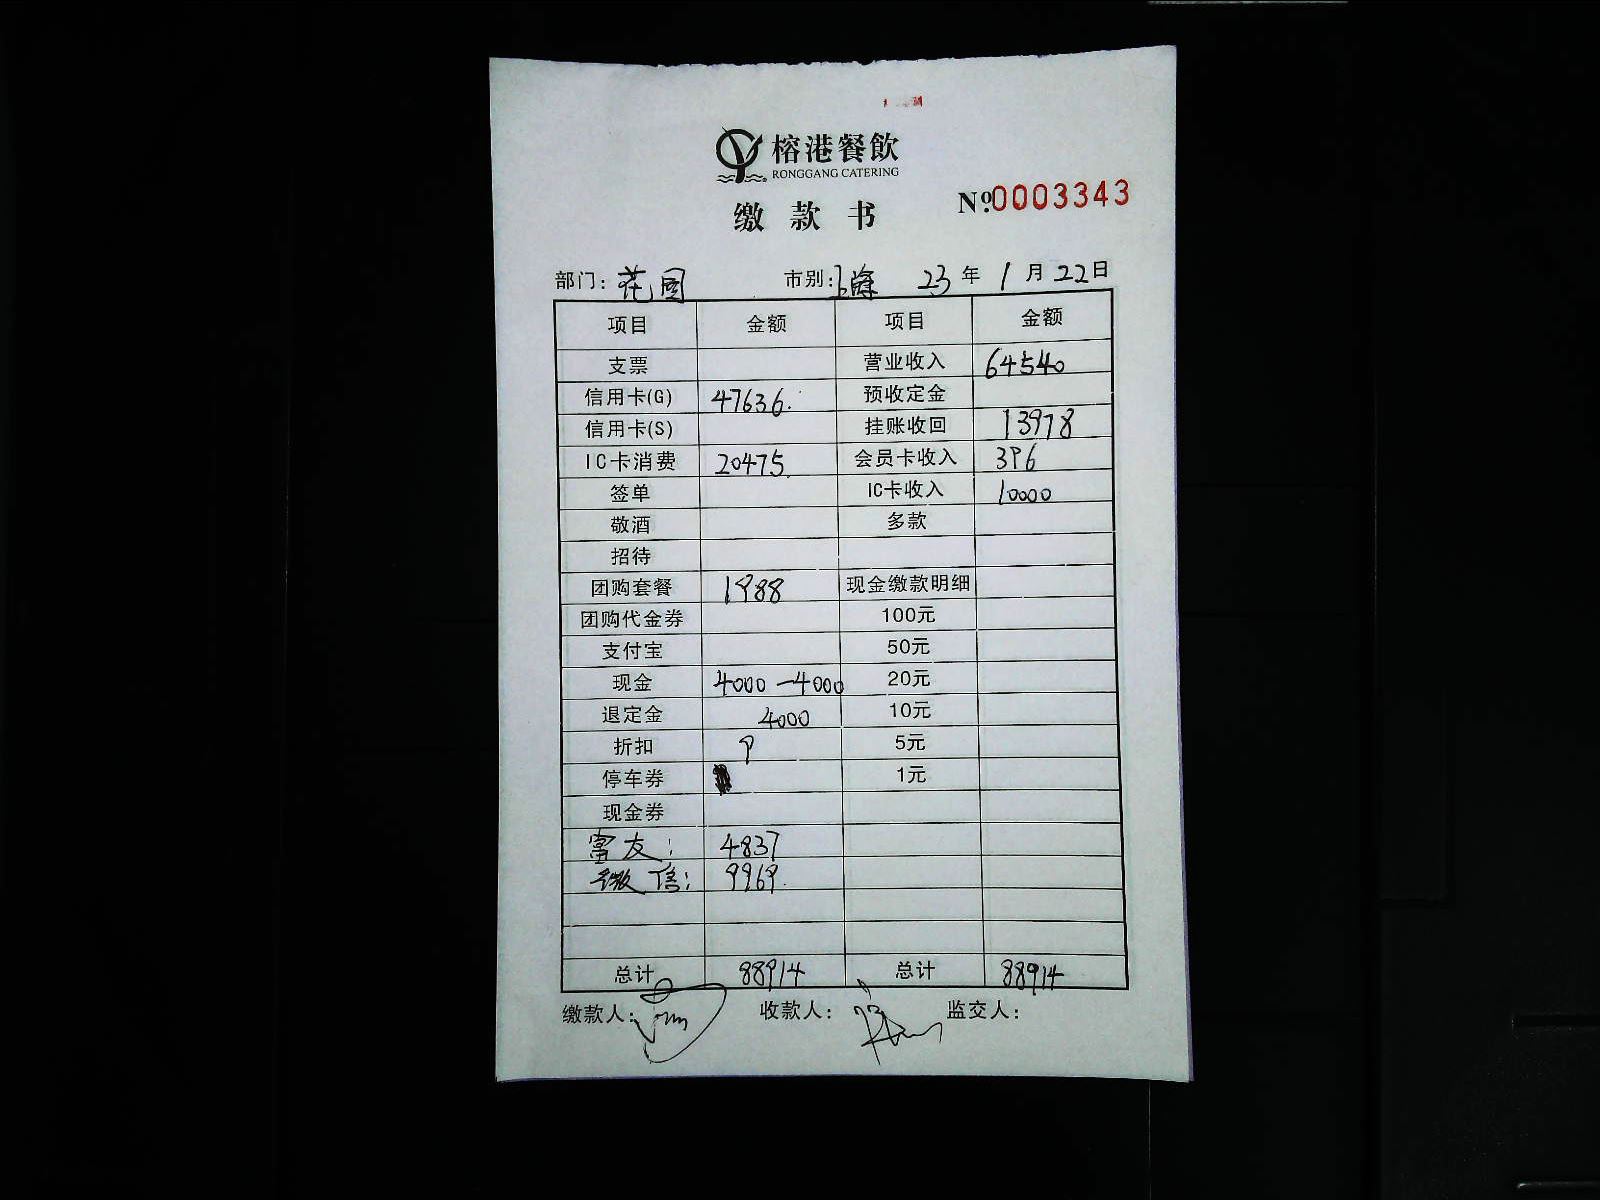 榕港餐飲
RONGGANG CATERING
缴款书
Nº.0003343
部门: 花园 市别: 上海 23年1月22日
项目 金额 项目 金额
支票 营业收入 64540
信用卡(G) 47636. 预收定金
信用卡(S) 挂账收回 13978
IC卡消费 20475. 会员卡收入 396
签单 IC卡收入 10000
敬酒 多款
招待
团购套餐 1988 现金缴款明细
团购代金券 100元
支付宝 50元
现金 4000-4000 20元
退定金 4000 10元
折扣 9 5元
停车券 1元
现金券
雷友: 4837
微信: 9969.
总计 88914 总计 88914
缴款人: 收款人: 监交人: